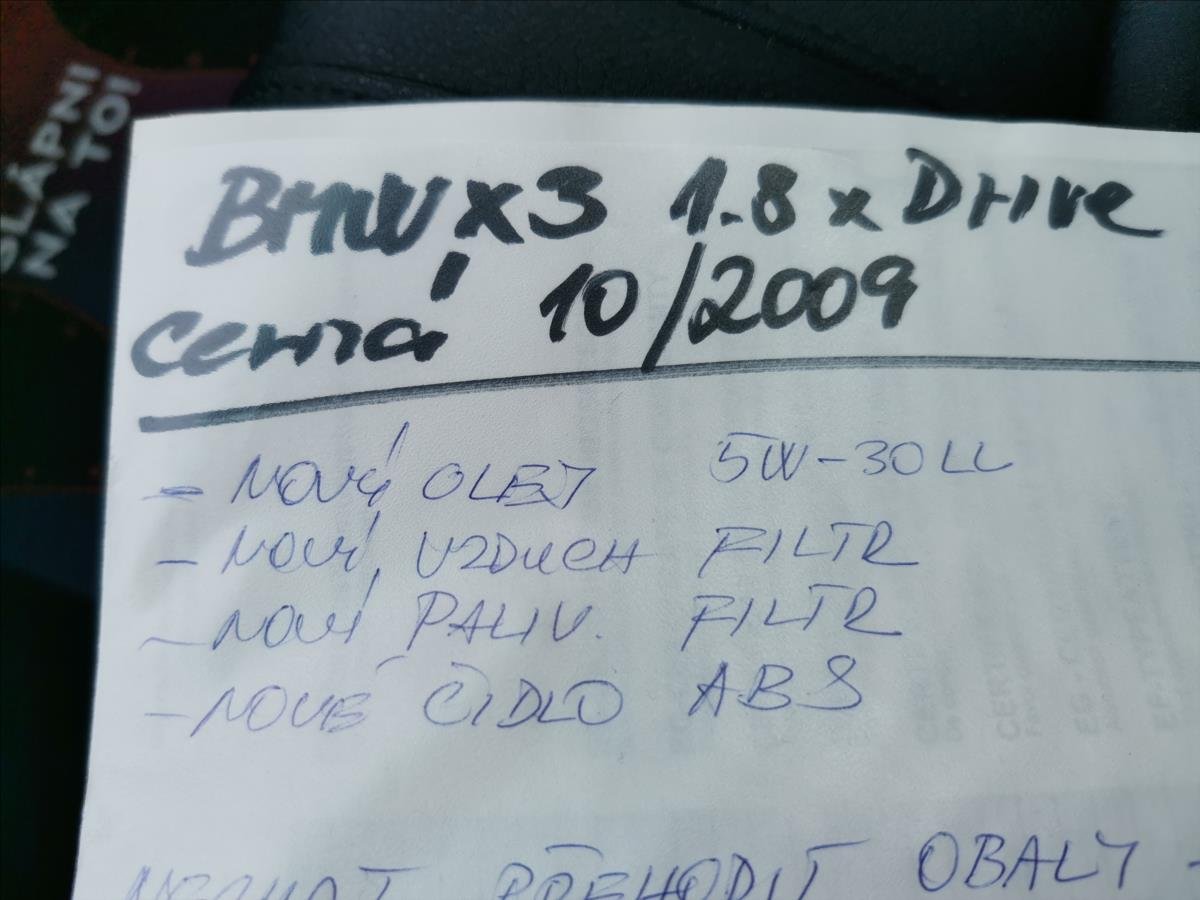 ŠLÁPNI
NA TO!
BMW X3 1.8 x Drive
Černá 10/2009
- NOVÝ OLEJ 5W-30LL
- NOVÝ VZDUCH FILTR
- NOVÝ PALIV. FILTR
- NOVÉ ČIDLO ABS
NECHAT PŘEHODIT OBALY -